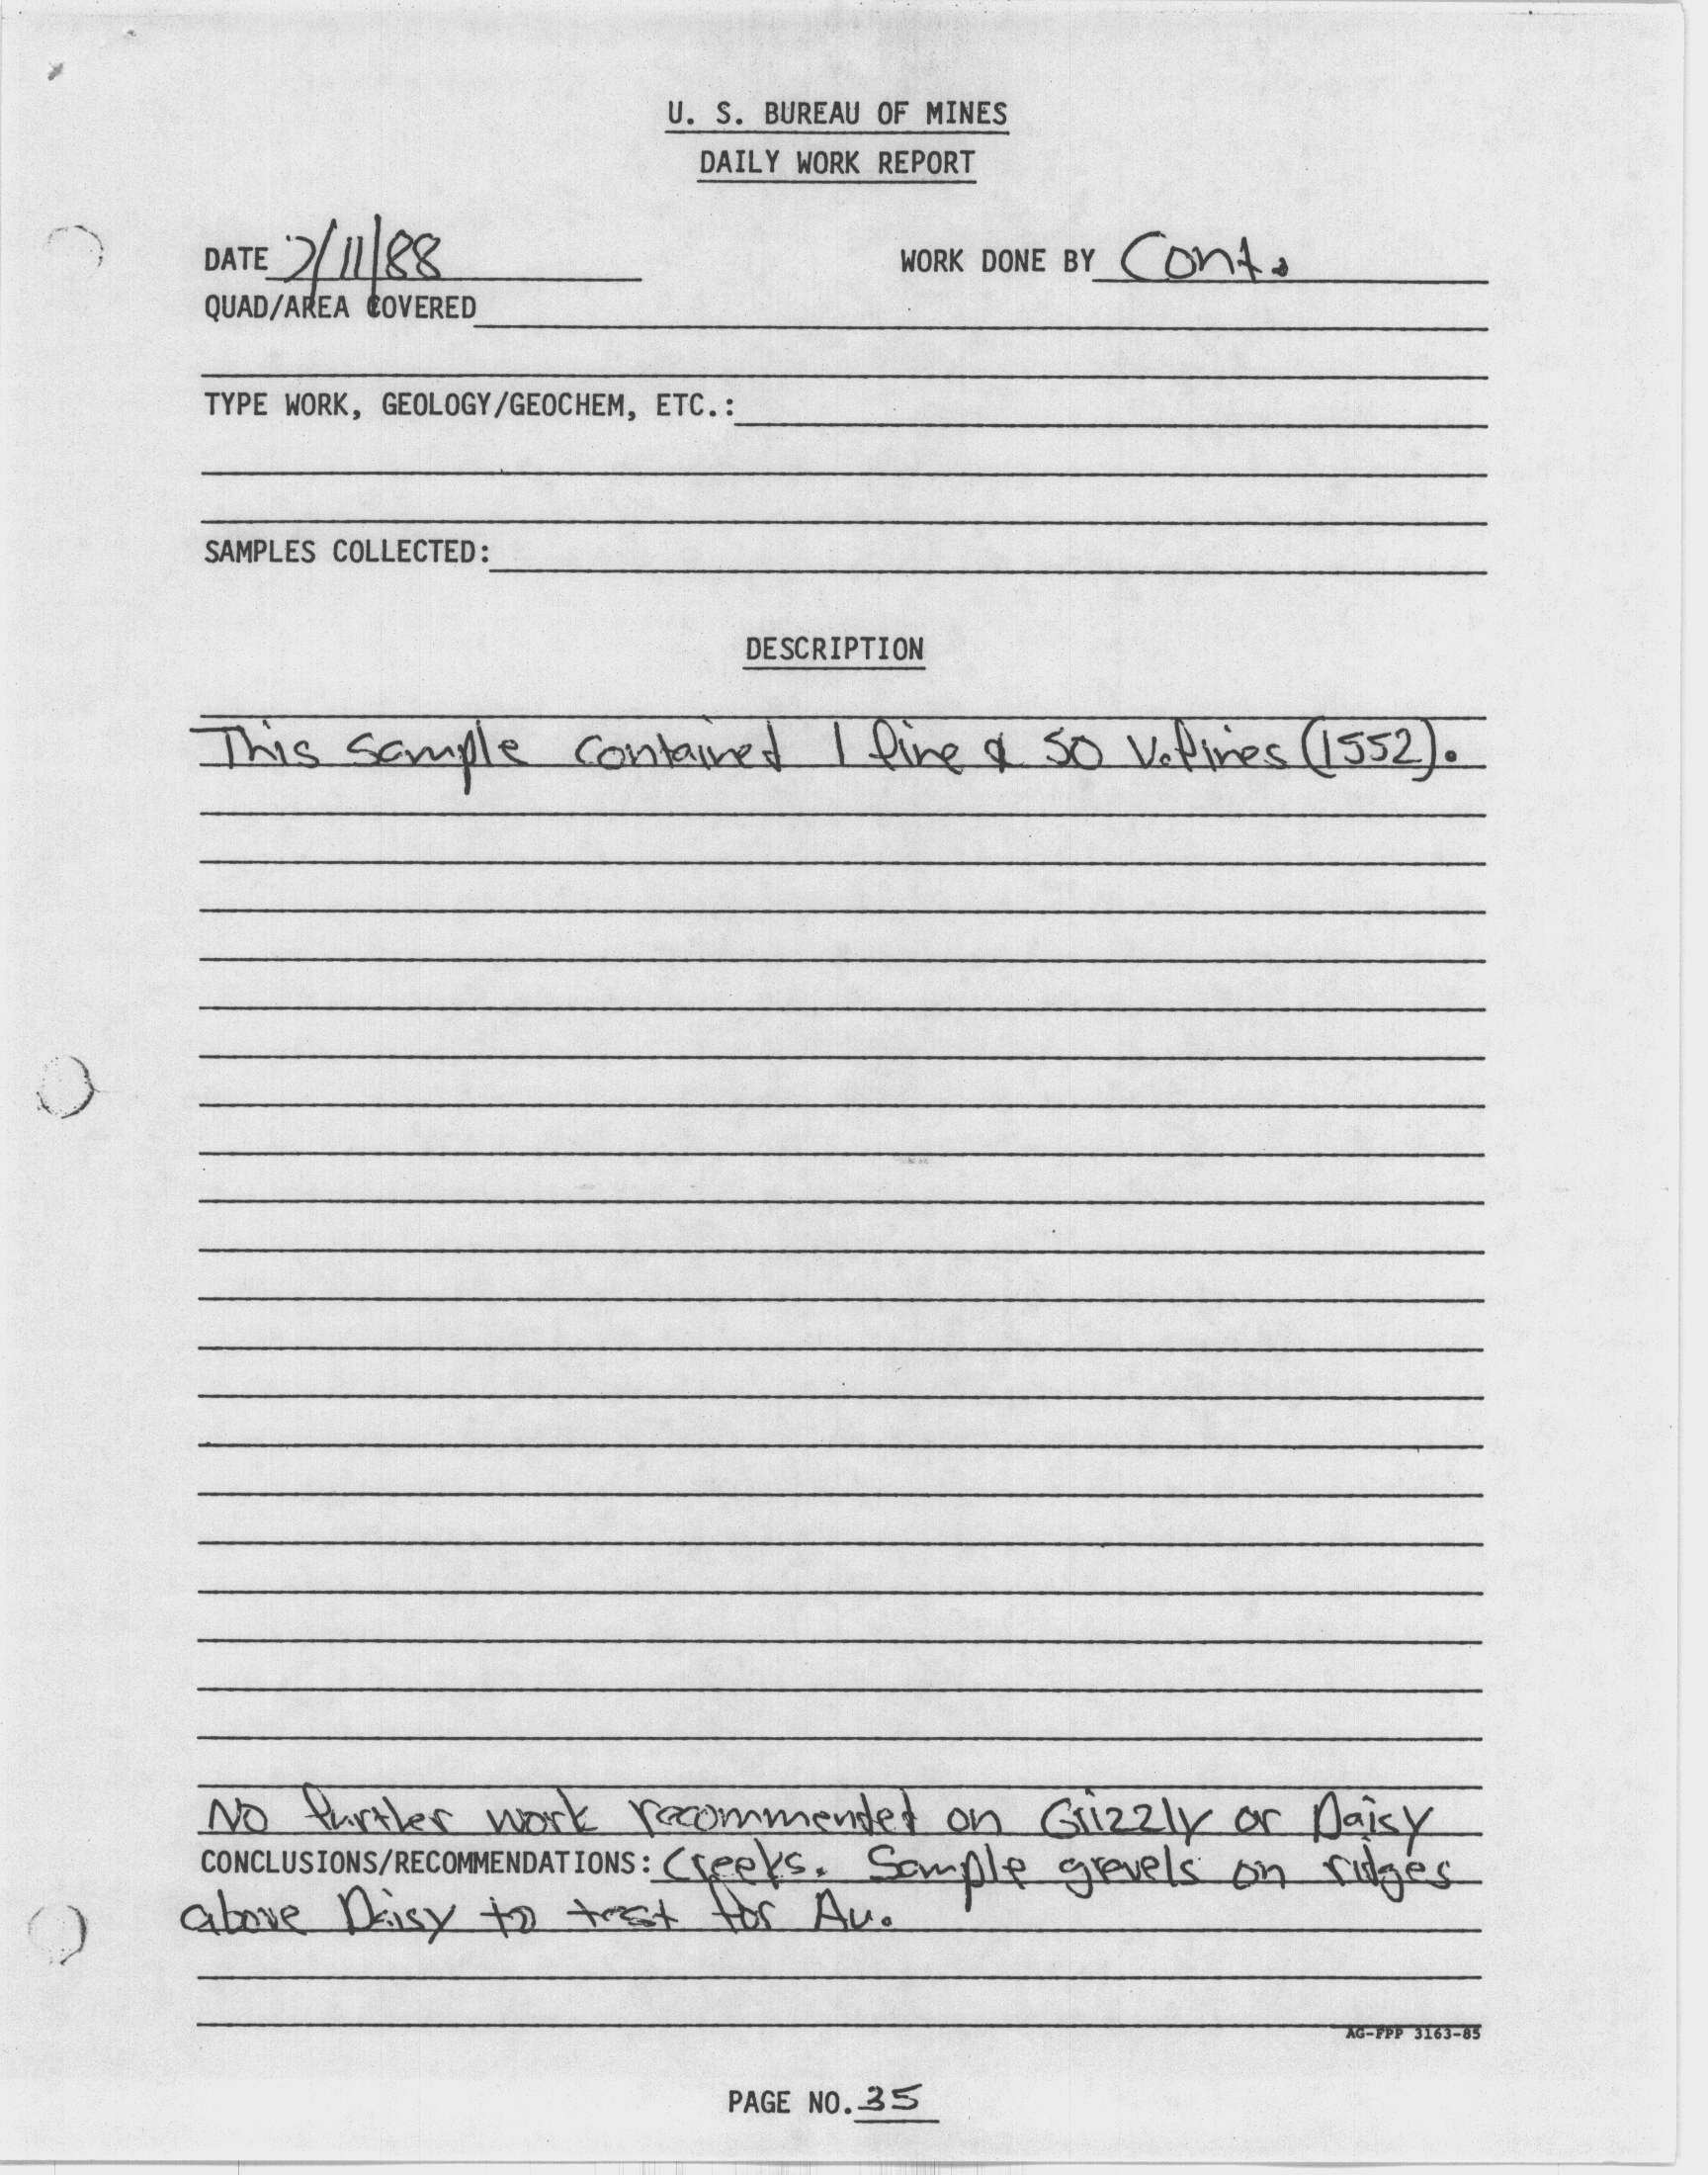 U. S. BUREAU OF MINES
DAILY WORK REPORT
DATE 7/11/88 WORK DONE BY Cont.
QUAD/AREA COVERED
TYPE WORK, GEOLOGY/GEOCHEM, ETC.:
SAMPLES COLLECTED:
DESCRIPTION
This sample contained 1 fine & 50 V.fines (1552).
No further work recommended on Grizzly or Daisy
CONCLUSIONS/RECOMMENDATIONS: Creeks. Sample gravels on ridges
above Daisy to test for Au.
AG-FPP 3163-85
PAGE NO. 35